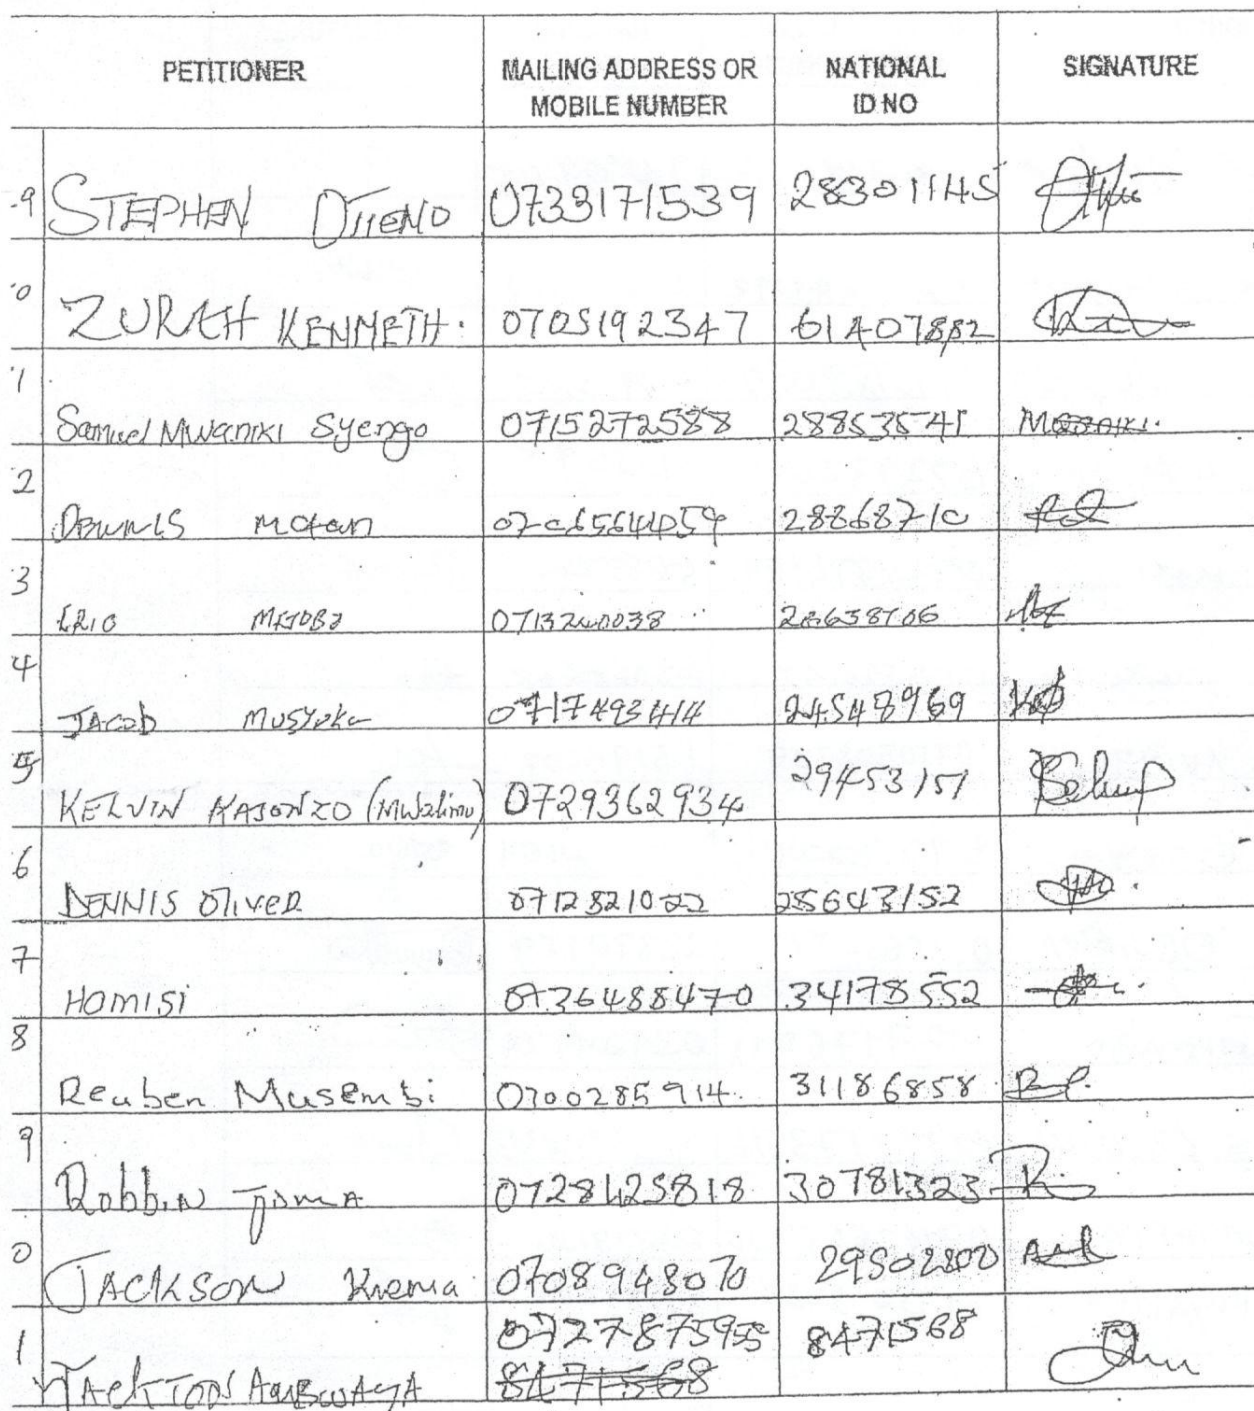 PETITIONER MAILING ADDRESS OR MOBILE NUMBER NATIONAL ID NO SIGNATURE
9 STEPHEN OTIENO 0733171539 28301145
0 ZURAH KENNETH. 0705192347 61407882
1 Samuel Mwaniki Syengo 0715272588 28853541
2 0706564059 28868710
3 ERIC 0713240038
4 JACOB MUSYOKA 0717493414 24548969
5 KELVIN KASONZO (MWalimu) 0729362934 29453151
6 DENNIS OLIVER 0712821022 25643152
7 HOMISI 0736488470 34178552
8 Reuben Musembi 0700285914 31186858
9 Robbin JUMA 0728425818 30781323
0 JACKSON 0708948070 29502800
1 0727875955 8471568
8471568